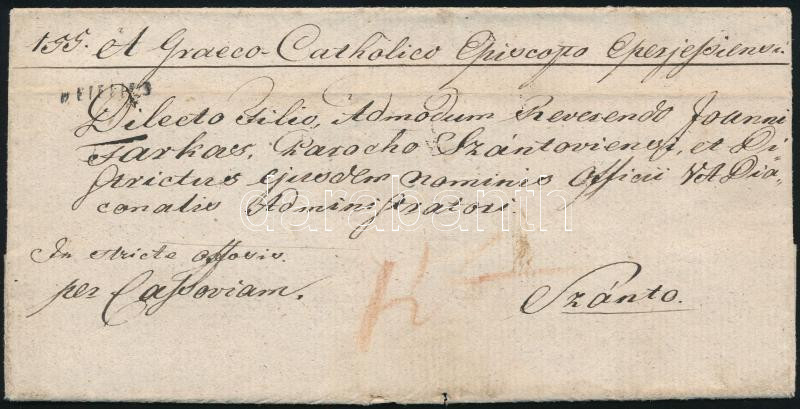 155. A Graeco-Catholico Episcopo Eperjessiensi.
Dilecto Filio, Admodum Reverendo Joanni
Farkas, Parocho Szántoviensi, et Di
strictus ejusdem nominis Officii VADia,
conalis Administratori.
In stricte offosis.
per Cassoviam.
Szánto.
darabanth.com